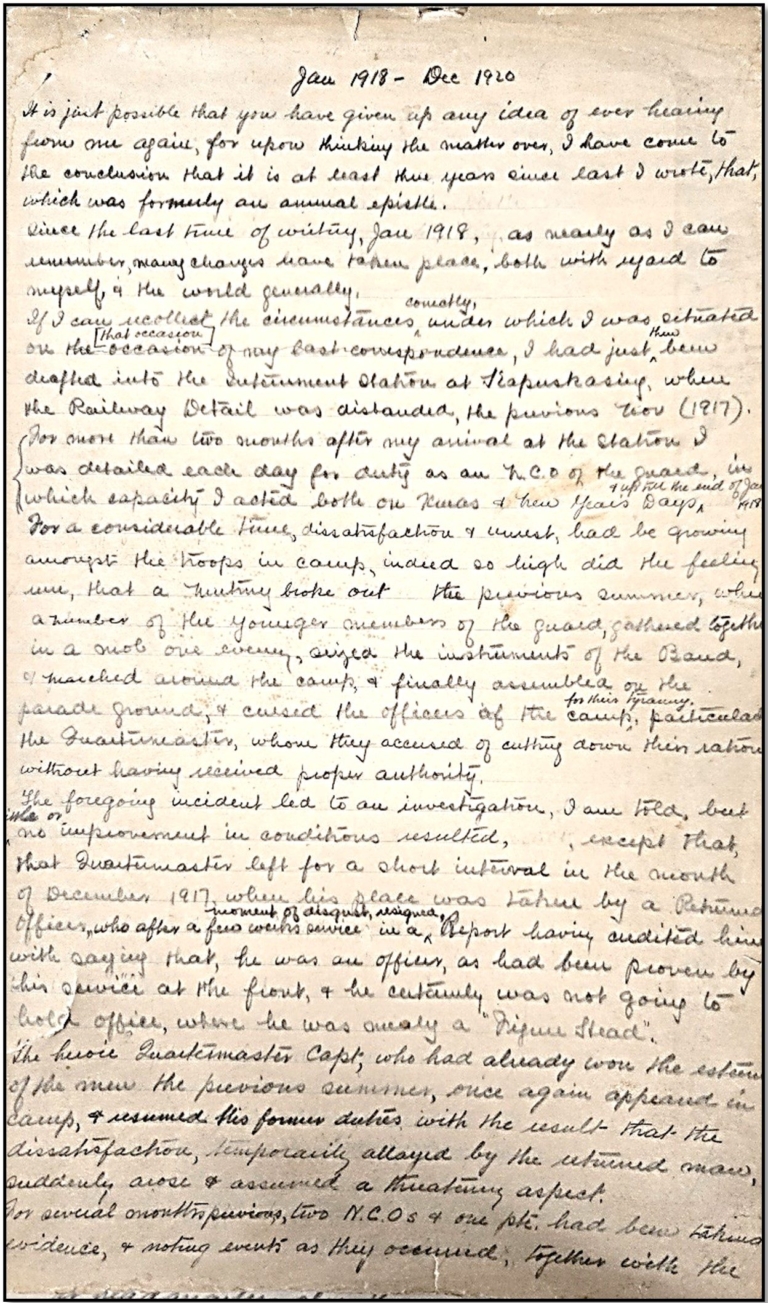 Jan 1918 - Dec 1920
It is just possible that you have given up any idea of ever hearing
from me again, for upon thinking the matter over, I have come to
the conclusion that it is at least three years since last I wrote, that,
which was formerly an annual epistle.
Since the last time of writing, Jan 1918, as nearly as I can
remember, many changes have taken place, both with regard to
myself, & the world generally.
correctly,
If I can recollect the circumstances under which I was situated
[that occasion] then
on the occasion of my last correspondence, I had just been
drafted into the Internment Station at Kapuskasing, when
the Railway Detail was disbanded, the previous Nov (1917).
For more than two months after my arrival at the Station I
was detailed each day for duty as an N.C.O of the guard, in
& up till the end of Jan
which capacity I acted both on Xmas & New Years Days, 1918
For a considerable time, dissatisfaction & unrest, had be growing
amongst the troops in camp, indeed so high did the feeling
run, that a mutiny broke out the previous summer, when
a number of the younger members of the guard, gathered together
in a mob one evening, seized the instruments of the Band,
& marched around the camp, & finally assembled on the
for their tyranny.
parade ground, & cursed the officers of the camp, particular
the Quartermaster, whom they accused of cutting down their ration
without having received proper authority.
The foregoing incident led to an investigation, I am told, but
little or
no improvement in conditions resulted, , except that,
that Quartermaster left for a short interval in the month
of December 1917, when his place was taken by a Returned
moment of disgust, resigned,
Officer, who after a few weeks service in a Report having credited him
with saying that, he was an officer, as had been proven by
his service at the front, & he certainly was not going to
hold office, where he was mealy a "Figure Stead".
The heroic Quartermaster Capt, who had already won the esteem
of the men the previous summer, once again appeared in
camp, & resumed his former duties, with the result that the
dissatisfaction, temporarily allayed by the returned man,
suddenly arose & assumed a threatening aspect.
For several months previous, two N.C.Os & one pte. had been taking
evidence, & noting events as they occurred, together with the